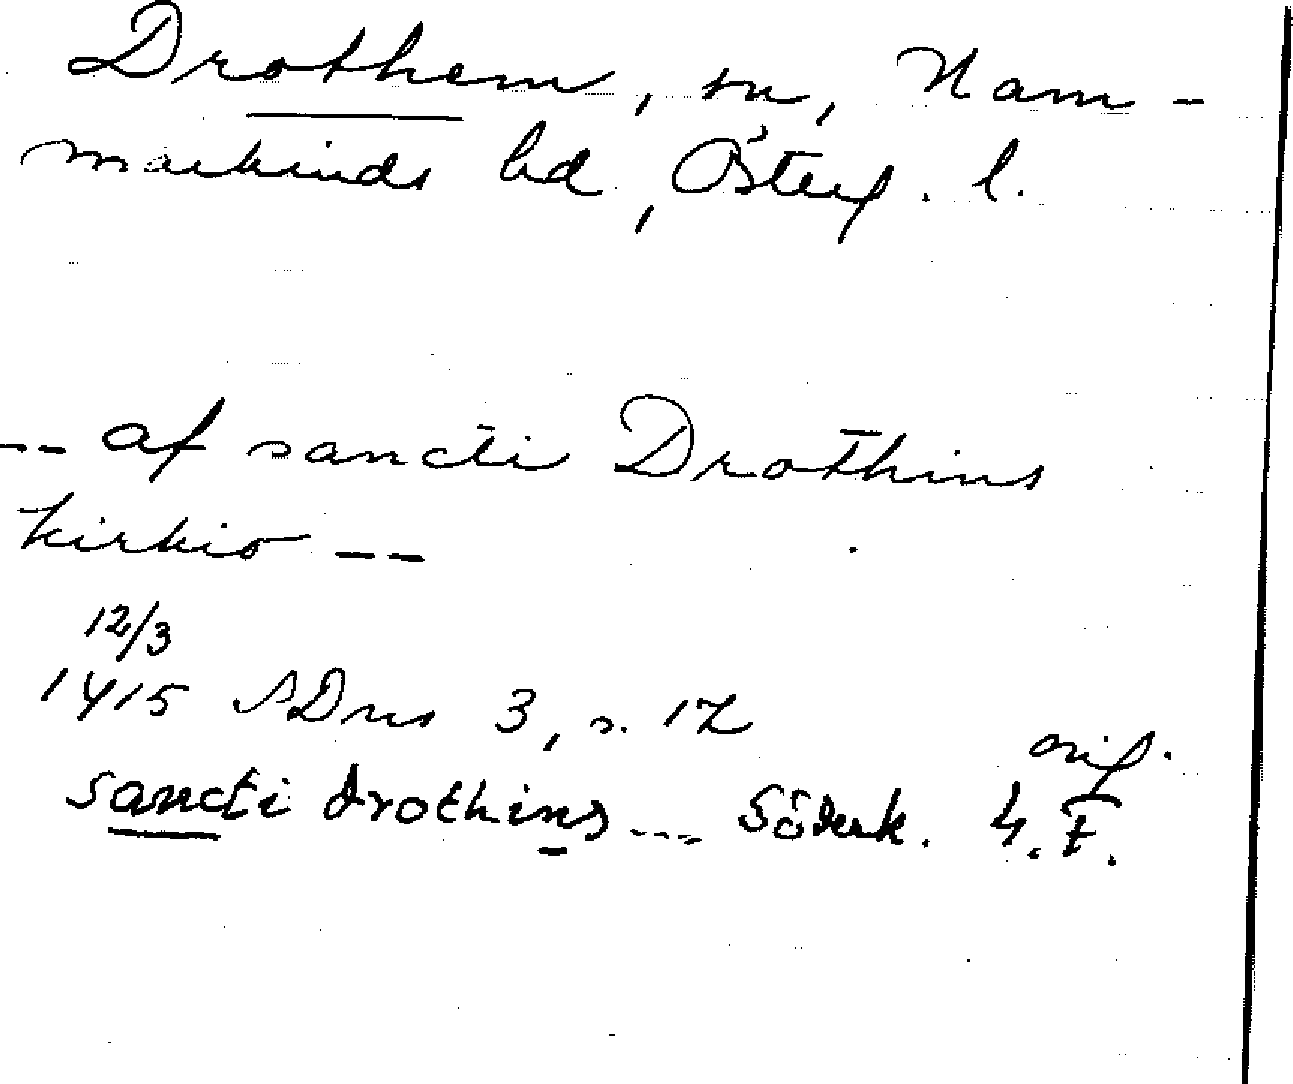 Drothem, sn, Ham-
markinds hd, Österg. l.
-- af sancti Drothins
kirkio --
12/3
1415 SDns 3, s. 12
orig.
sancti drothins --- Söderk. h. F.